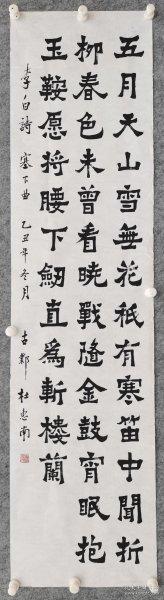 五月天山雪無花祇有寒笛中聞折
柳春色未曾看曉戰隨金鼓宵眠抱
玉鞍愿將腰下劒直為斬樓蘭
李白詩 塞下曲 乙丑年冬月 古鄭 杜惠南